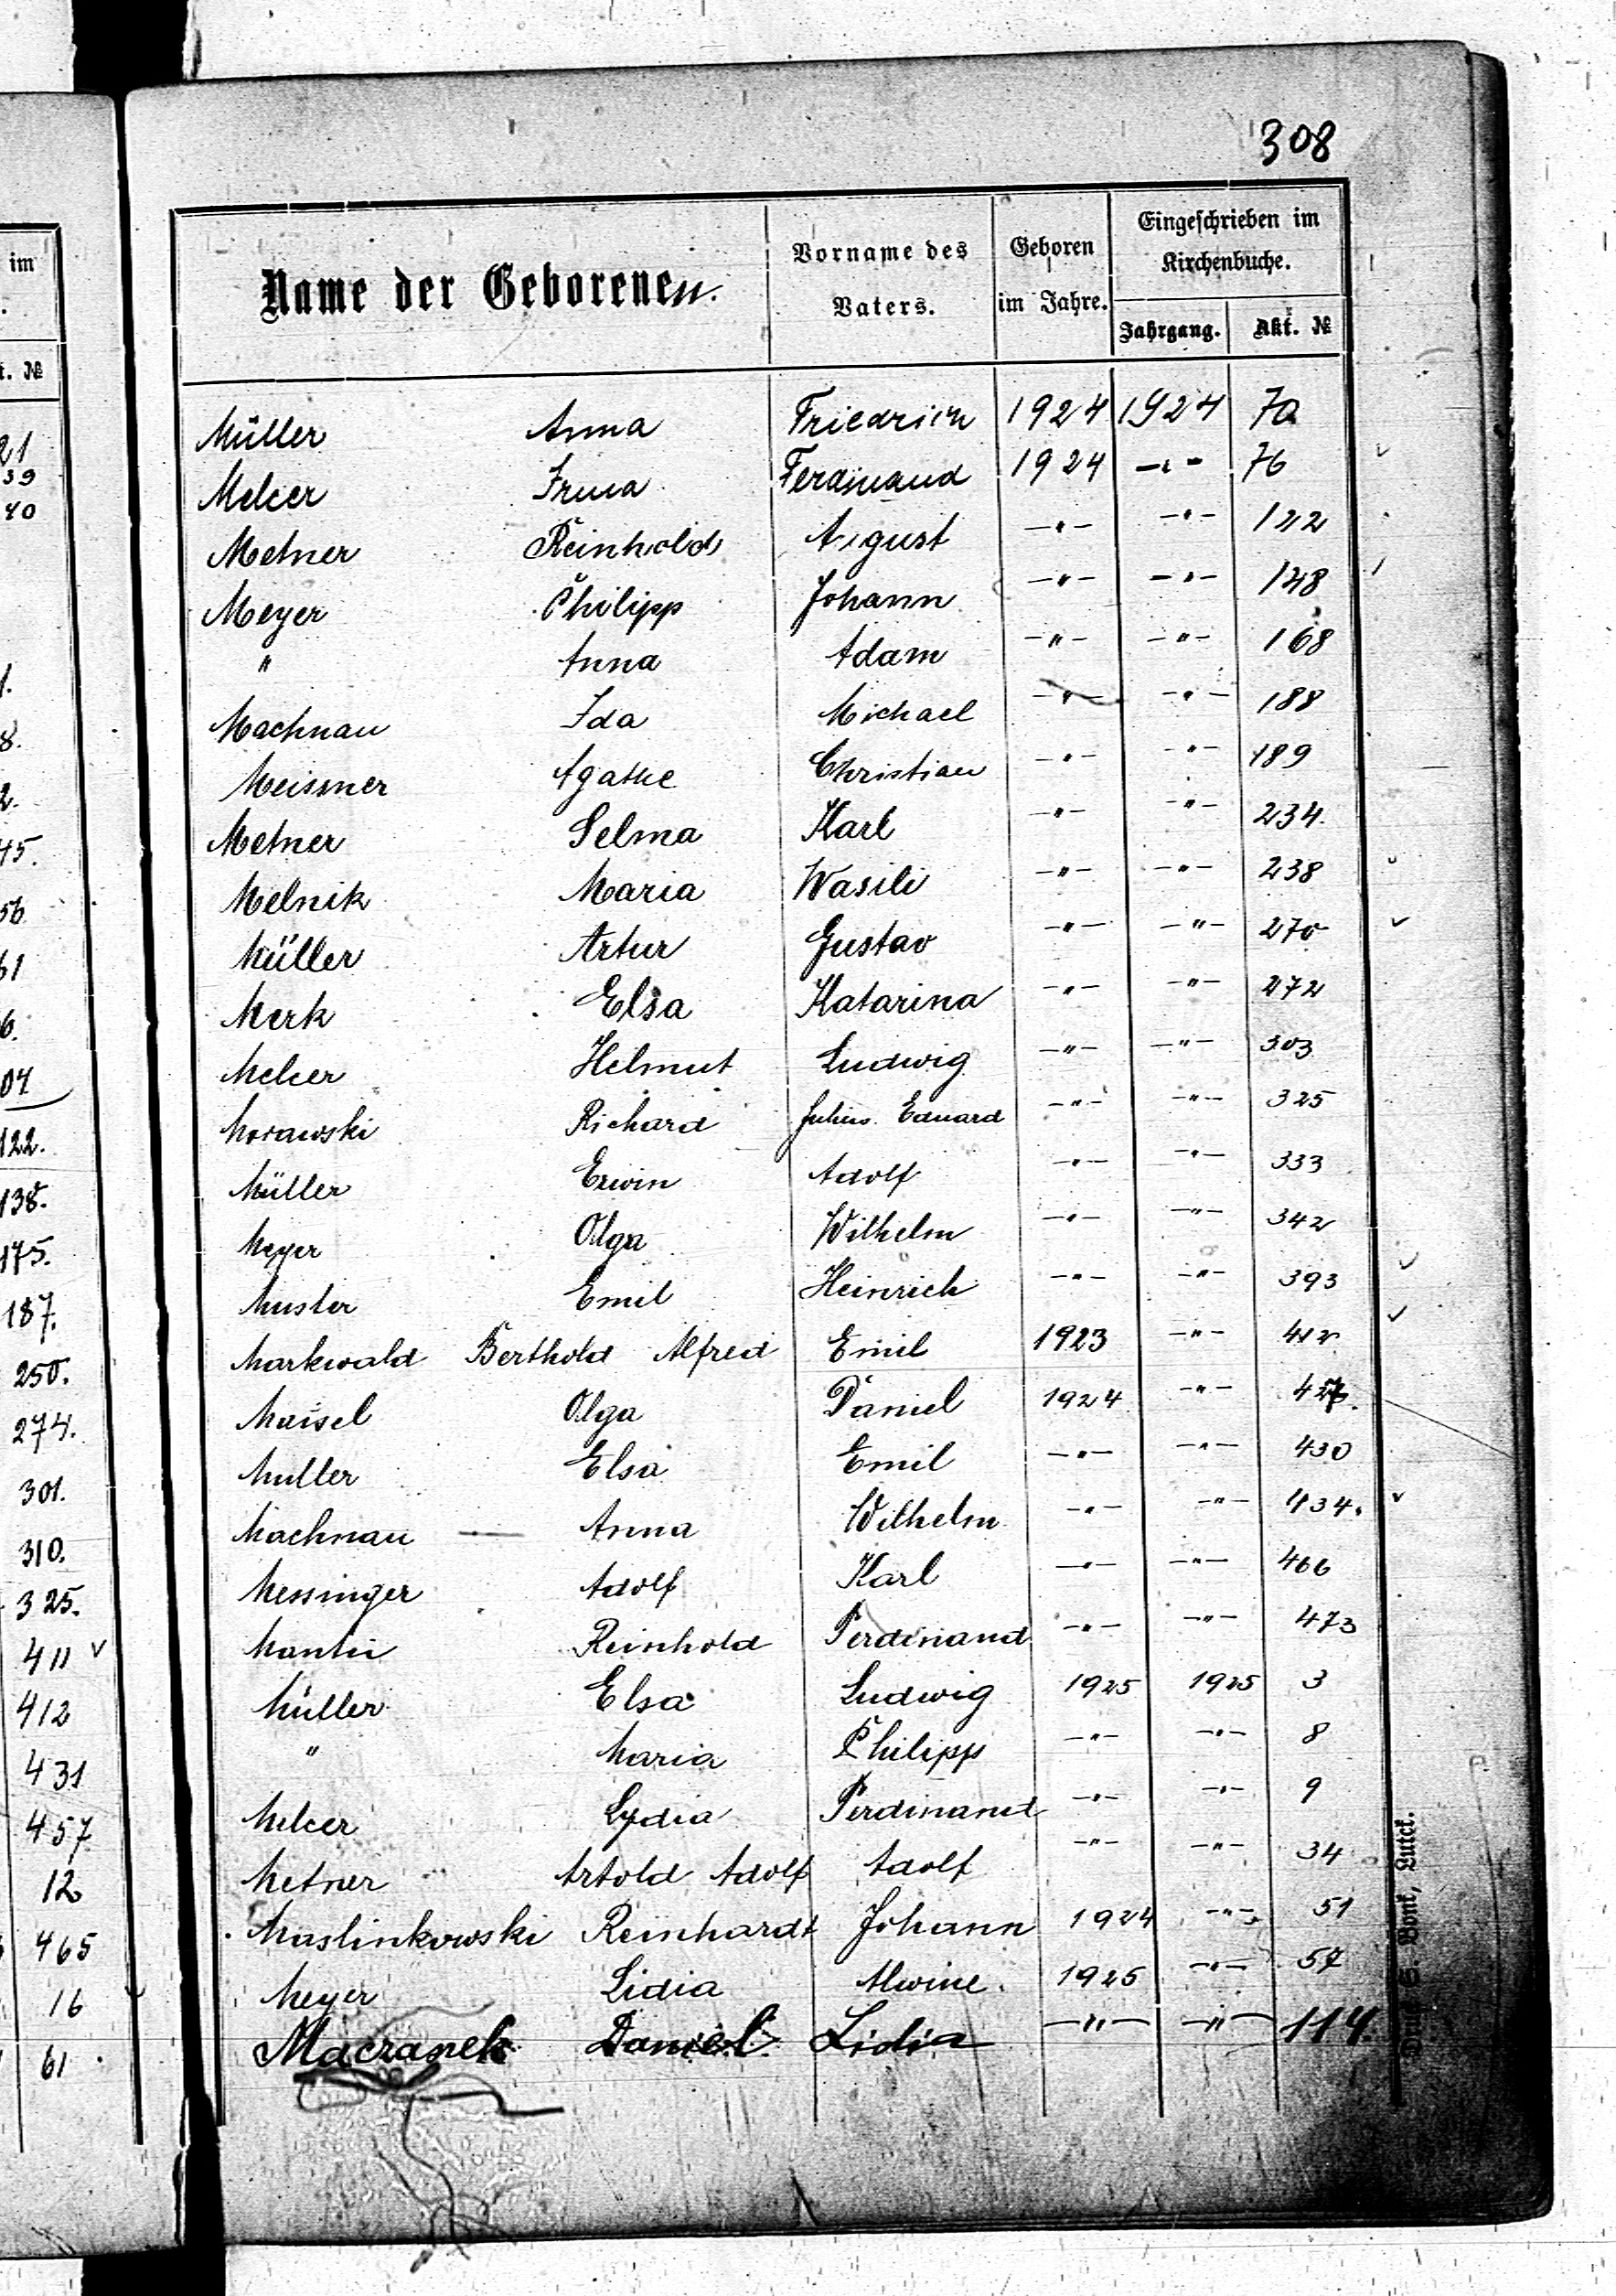 308
im
t. №
21
39
40
1.
8.
2.
45.
56
61
6.
04
122.
138.
175.
187.
250.
274.
301.
310.
325.
411 v
412
431
457
12
465
16
61
Name der Geborenen. Vorname des Vaters. Geboren im Jahre. Eingeschrieben im Kirchenbuche.
Jahrgang. Akt. №
Müller Anna Friedrich 1924 1924 70
Melcer Irma Ferdinand 1924 -"- 76
Metner Reinhold August -"- -"- 122
Meyer Philipp Johann -"- -"- 148
" Anna Adam -"- -"- 168
Machnau Ida Michael -"- -"- 188
Meissner Agathe Christian -"- -"- 189
Metner Selma Karl -"- -"- 234.
Melnik Maria Wasili -"- -"- 238
Müller Artur Gustav -"- -"- 270
Merk Elsa Katarina -"- -"- 272
Melcer Helmut Ludwig -"- -"- 303
Morawski Richard Julius Eduard -"- -"- 325
Müller Erwin Adolf -"- -"- 333
Meyer Olga Wilhelm -"- -"- 342
Muster Emil Heinrich -"- -"- 393
Markwald Berthold Alfred Emil 1923 -"- 412
Maisel Olga Daniel 1924 -"- 427.
Muller Elsa Emil -"- -"- 430
Machnau — Anna Wilhelm -"- -"- 434.
Messinger Adolf Karl -"- -"- 466
Mantei Reinhold Ferdinand -"- -"- 473
Müller Elsa Ludwig 1925 1925 3
" Maria Philipp -"- -"- 8
Melcer Lydia Ferdinand -"- -"- 9
Metner Artold Adolf Adolf -"- -"- 34
Maslinkowski Reinhardt Johann 1924 -"- 51
Meyer Lidia Alwine. 1925 -"- 57
Maczanek Daniel Lidia -"- -"- 114.
Druck S. Bont, Lutck.